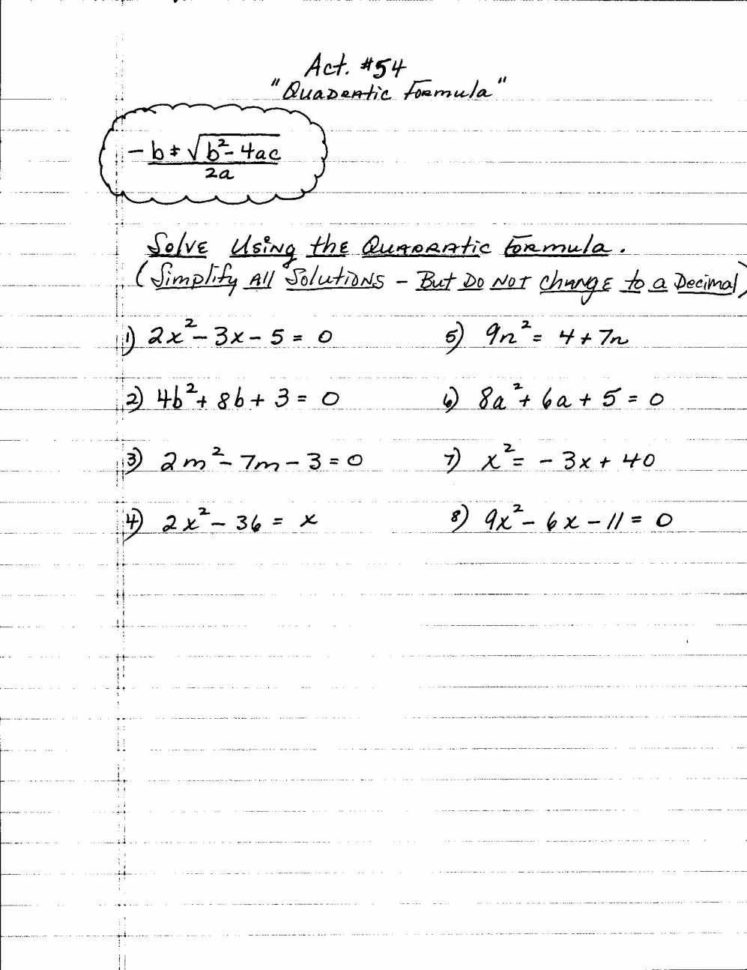 Act. #54
"Quadratic Formula"
-b ± √b²-4ac
2a
Solve Using the Quadratic Formula.
(Simplify All Solutions - But Do Not Change to a Decimal)
1) 2x² - 3x - 5 = 0
5) 9n² = 4 + 7n
2) 4b² + 8b + 3 = 0
6) 8a² + 6a + 5 = 0
3) 2m² - 7m - 3 = 0
7) x² = -3x + 40
4) 2x² - 36 = x
8) 9x² - 6x - 11 = 0